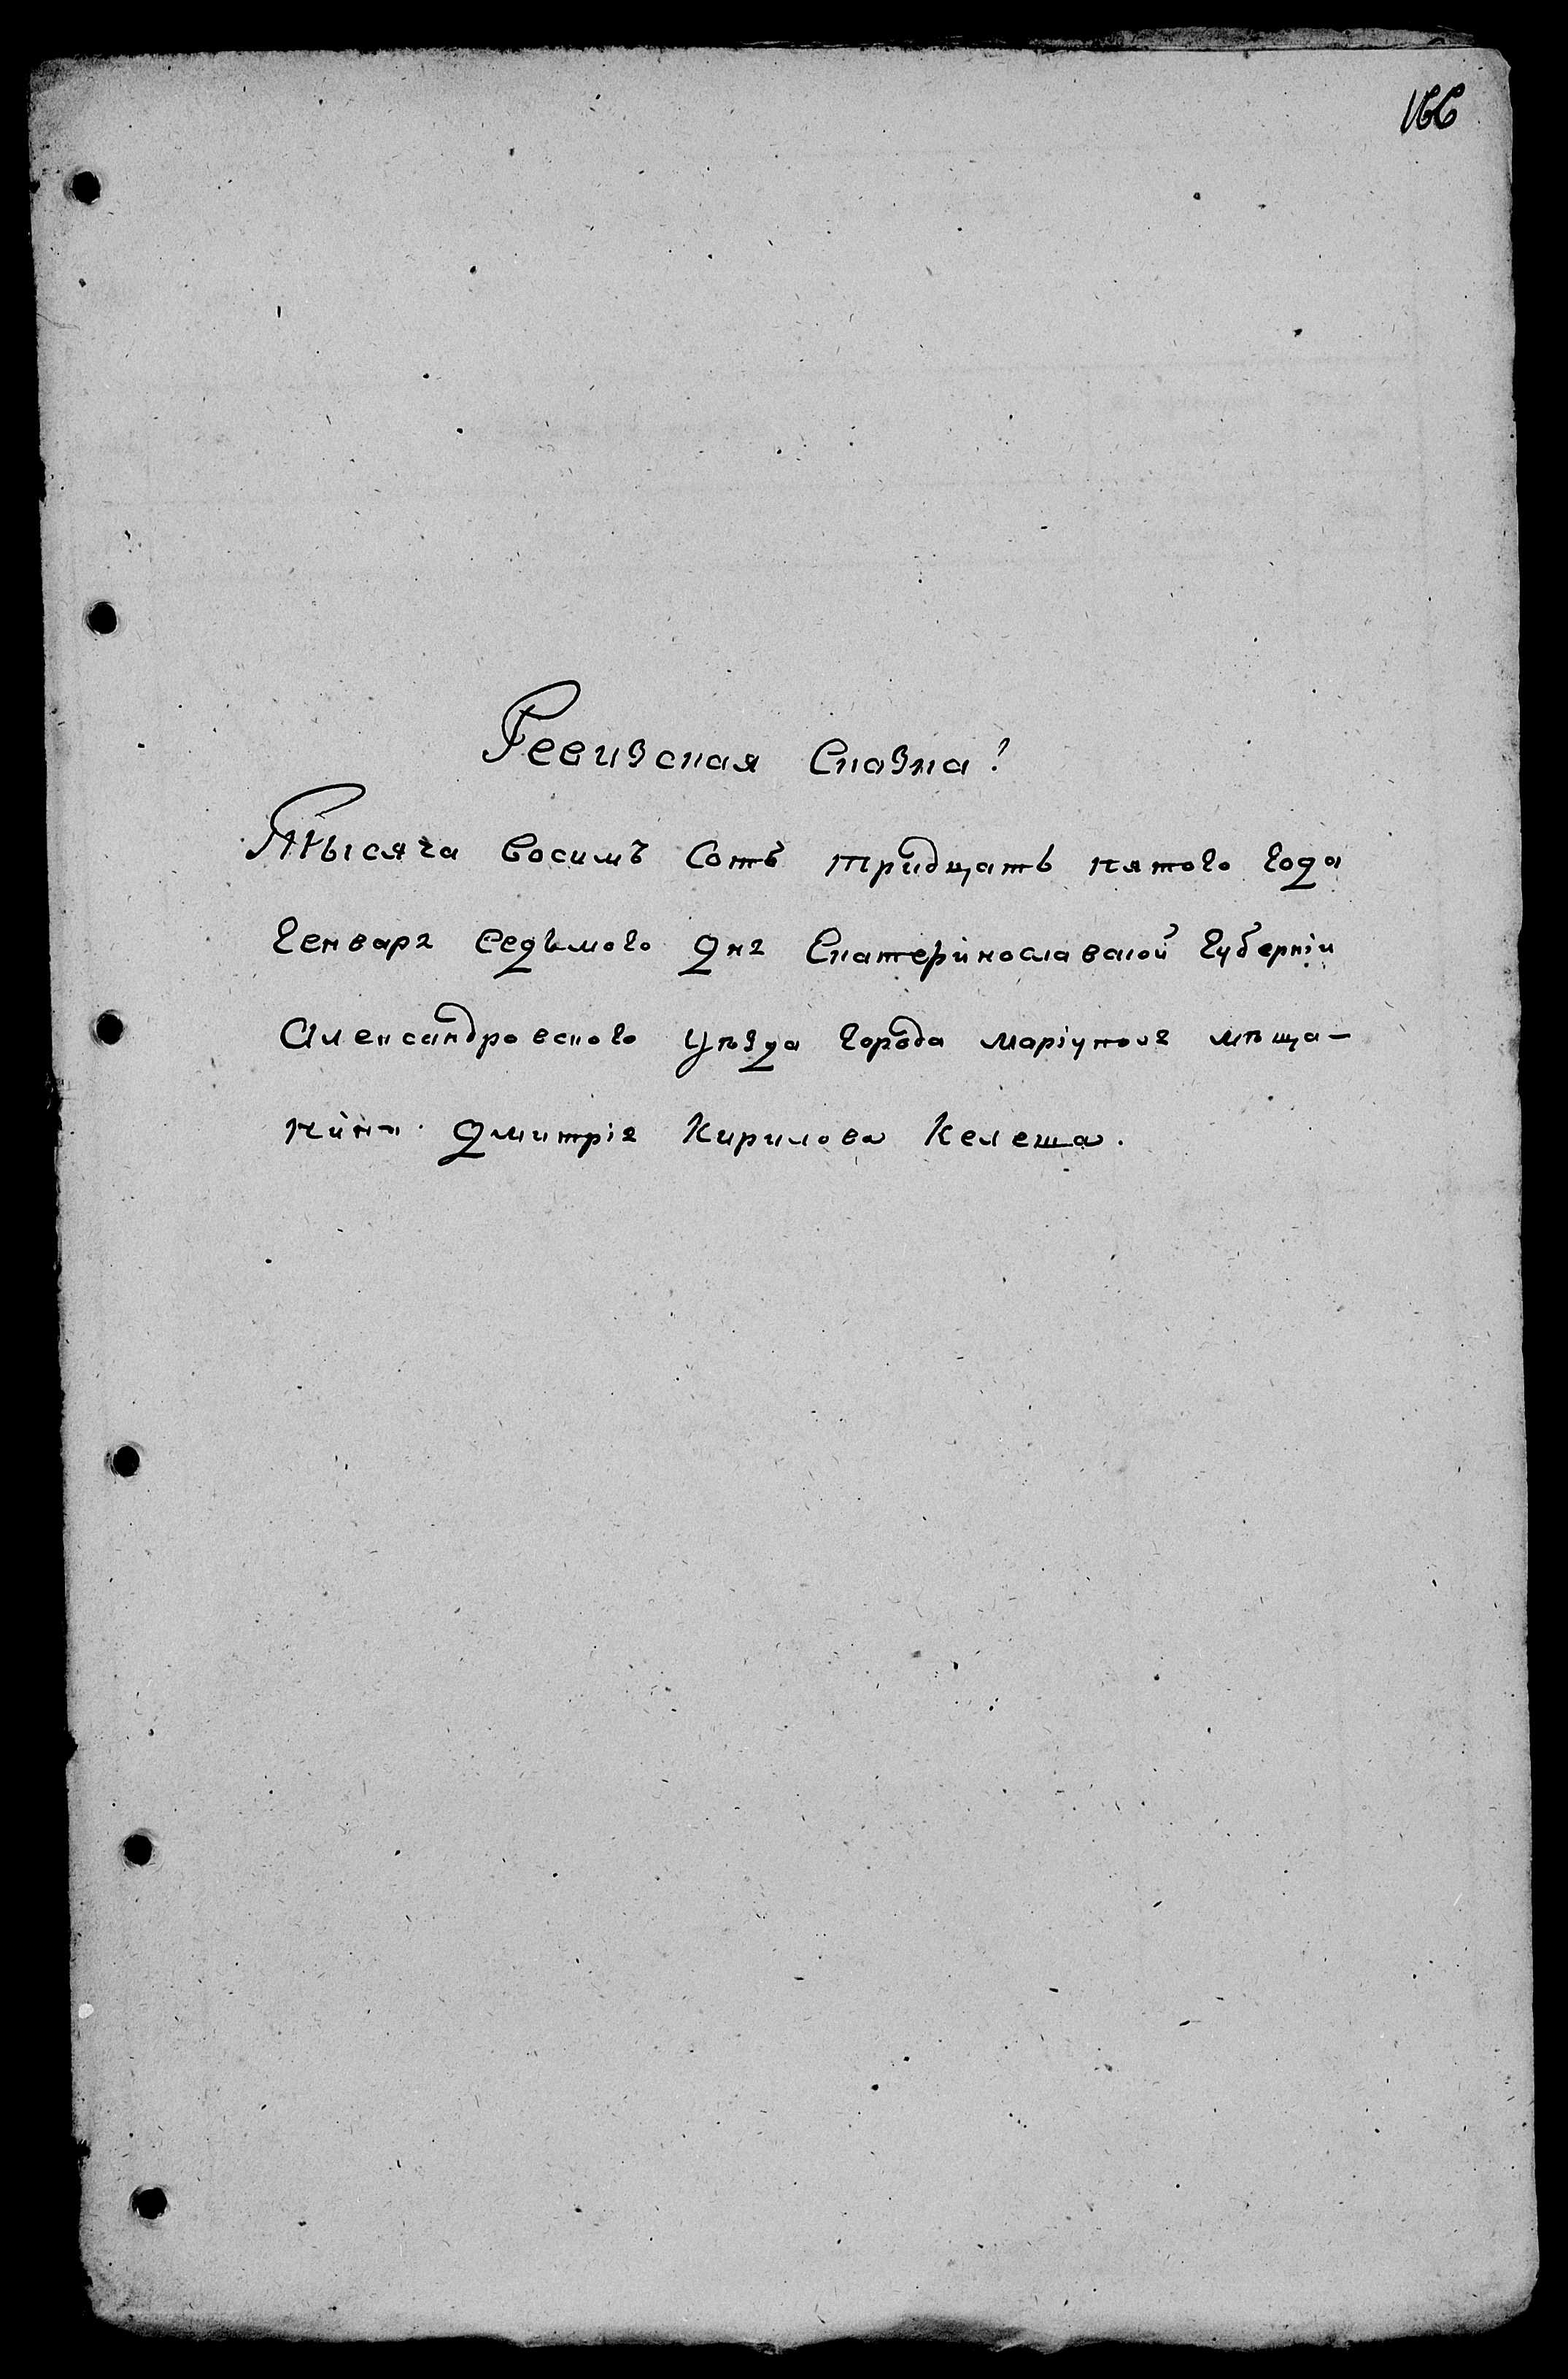 166
Ревизская Сказка!
Тысяча восимъ сотъ тридцать пятого года
Генваря седьмого дня Екатеринославской Губерніи
Александровского уѣзда города маріуполя мѣща-
нина Дмитрія Кирилова Келеша.